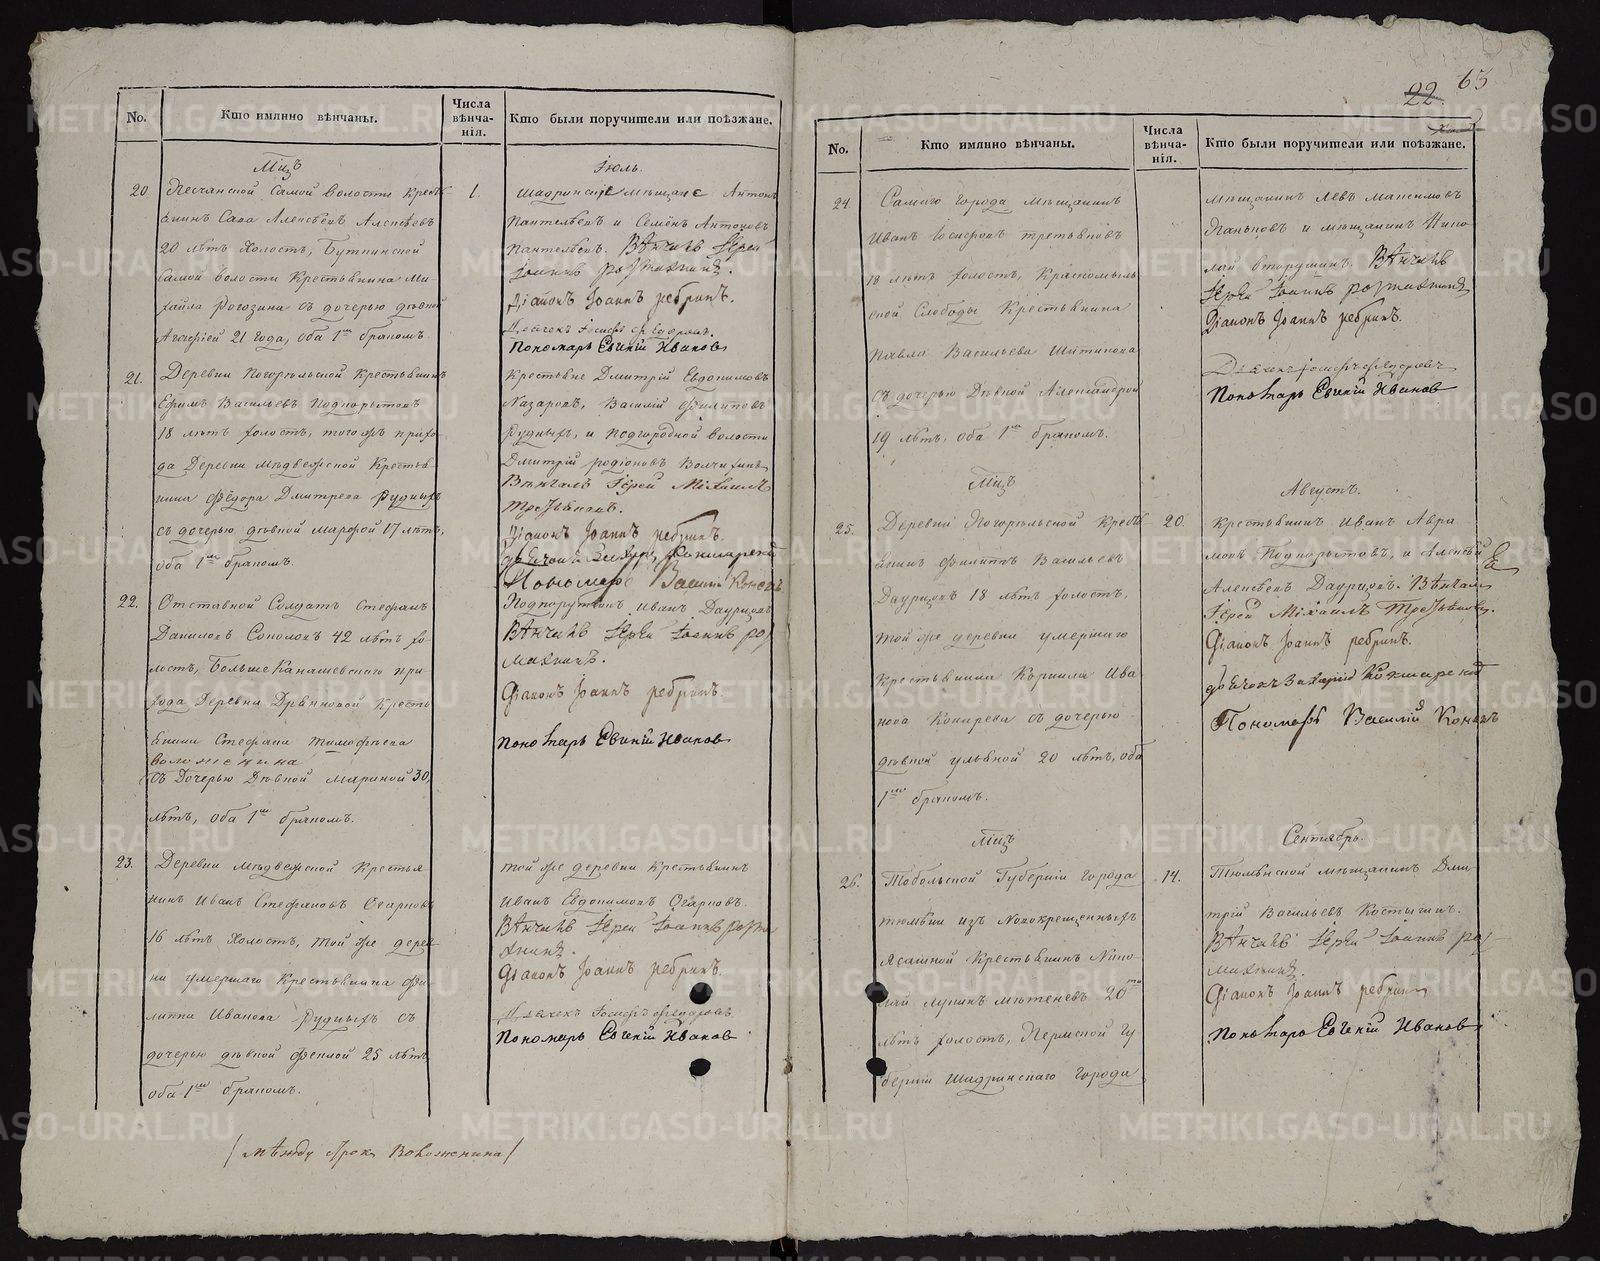 No.
Кто имянно вѣнчаны.
Числа вѣнча-нія.
Кто были поручители или поѣзжане.
Мцъ
Іюль.
20
Песчанской самой волости Кресть
янинъ Сава Алексѣевъ
20 лѣтъ холостъ, Буткинской
самой волости Крестьянина Ми
хайла Рогозина съ дочерью дѣвкой
Агафіей 21 года, оба 1мъ бракомъ
1.
Шадринскіе мѣщане Антонъ
Пантелѣевъ и Семёнъ Антоновъ
Пантелѣевъ. Вѣнчалъ Іерей
Іоаннъ
Діаконъ Іоаннъ Ребринъ.
Дьячекъ Іосифъ Федоровъ.
Пономарь Евгеній Ивановъ
21.
Деревни Погорѣльской Крестьянинъ
Ефимъ Васильевъ Подкорытовъ
18 лѣтъ холостъ, того жъ прихо
да Деревни Мѣдвежской Крестья
нина Фёдора Дмитрева Рудныхъ
съ дочерью дѣвкой Марфой 17 лѣтъ,
оба 1мъ бракомъ.
Крестьяне Дмитрій Евдокимовъ
Назаровъ, Василій Филиповъ
Рудныхъ, и Подгородной волости
Дмитрій Родіоновъ Волчихинъ
Вѣнчалъ Іерей Михаилъ
Діаконъ Іоаннъ Ребринъ.
Пономарь Василій
22.
Отставной Солдатъ Стефанъ
Даниловъ Соколовъ 42 лѣтъ хо
лостъ, Больше Канашевскаго при
хода Деревни Кресть
янина Стефана Тимофѣева
Воложенина
съ Дочерью Дѣвкой Мариной 30
лѣтъ, оба 1мъ бракомъ.
Подпорутчикъ Иванъ Даурцовъ
Вѣнчалъ Іерей Іоаннъ
Діаконъ Іоаннъ Ребринъ.
Пономарь Евгеній Ивановъ
23.
Деревни Мѣдвежской Крестья
нинъ Иванъ Стефановъ
16 лѣтъ холостъ, той же дерев
ни умершаго Крестьянина Фи
липпа Иванова Рудныхъ съ
дочерью дѣвкой Феклой 25 лѣтъ
оба 1мъ бракомъ.
той же деревни Крестьянинъ
Иванъ Евдокимовъ
Вѣнчалъ Іерей Іоаннъ
Діаконъ Іоаннъ Ребринъ.
Дьячекъ Іосифъ Федоровъ
Пономарь Евгеній Ивановъ
/между строкъ Воложенина/
22 63
No.
Кто имянно вѣнчаны.
Числа вѣнча-нія.
Кто были поручители или поѣзжане.
24.
Самаго города мѣщанинъ
Иванъ Іосифовъ Третьяковъ
18 лѣтъ холостъ, Красномыль
ской Слободы Крестьянина
Павла Васильева
съ дочерью Дѣвкой Александрой
19 лѣтъ, оба 1мъ бракомъ.
мѣщанинъ Левъ Максимовъ
и мѣщанинъ Нико
лай Вторушинъ. Вѣнчалъ
Іерей Іоаннъ
Діаконъ Іоаннъ Ребринъ.
Дьячекъ Іосифъ Федоровъ
Пономарь Евгеній Ивановъ
Мцъ
Августъ.
25.
Деревни Погорѣльской Кресть
янинъ Филиппъ Васильевъ
Даурцовъ 18 лѣтъ холостъ,
той же деревни умершаго
Крестьянина Корнила Ива
нова Кокарева съ дочерью
дѣвкой Ульяной 20 лѣтъ, оба
1мъ бракомъ.
20.
Крестьянинъ Иванъ Авра
мовъ Подкорытовъ, и Алексѣй
Алексѣевъ Даурцовъ. Вѣнчалъ
Іерей Михаилъ
Діаконъ Іоаннъ Ребринъ.
Дьячокъ Захарій
Пономарь Василій
Мцъ
Сентябрь.
26.
Тобольской Губерніи города
Тюмени изъ Новокрещенныхъ
Ясашной Крестьянинъ Нико
лай Лукинъ 20ти
лѣтъ холостъ, Пермской Гу
берніи Шадринскаго Города
14.
Тюмѣнской мѣщанинъ Дми
трій Васильевъ Костыгинъ.
Вѣнчалъ Іерей Іоаннъ
Діаконъ Іоаннъ Ребринъ
Пономарь Евгеній Ивановъ
METRIKI.GASO-URAL.RU